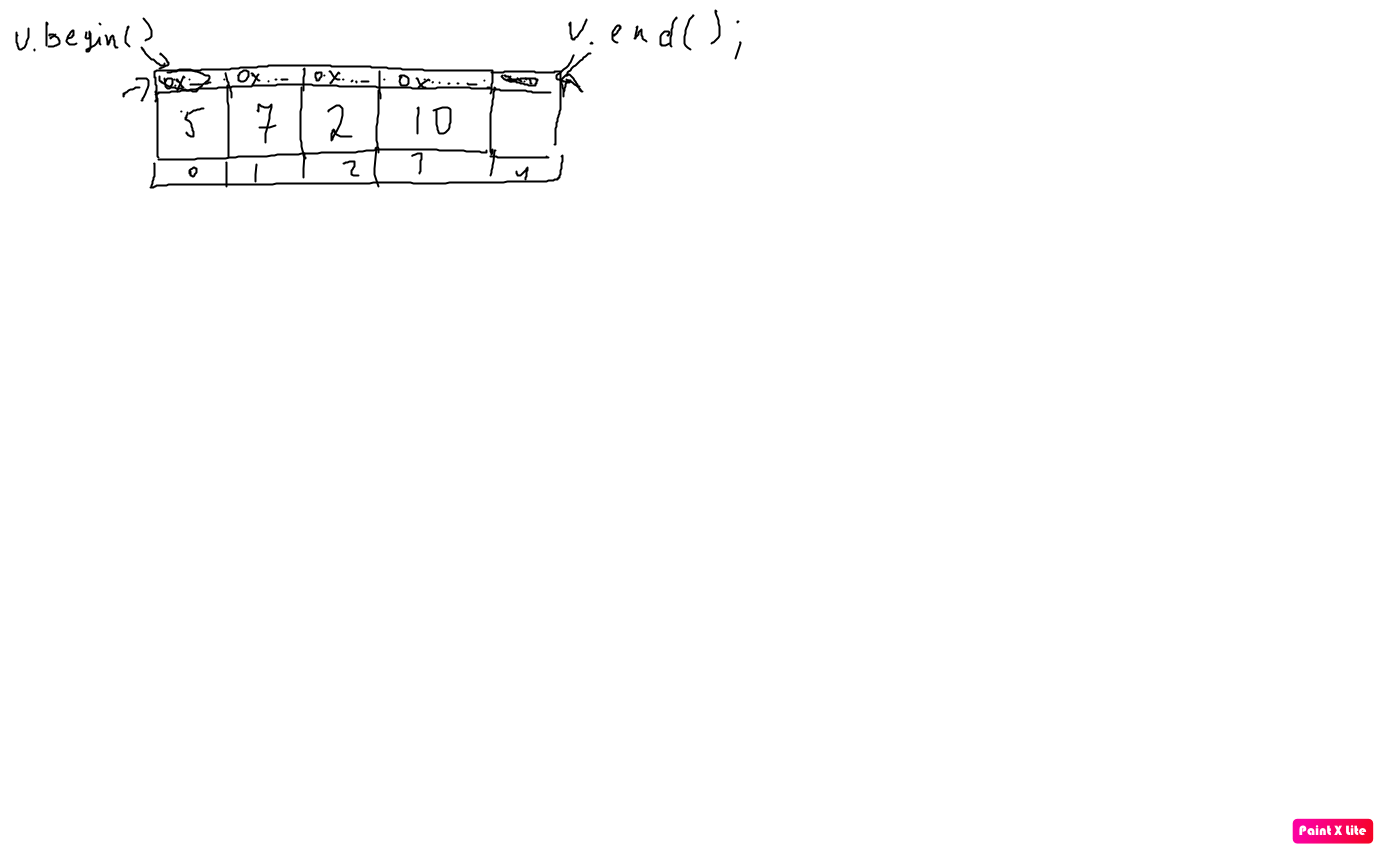 v.begin() v.end();
0x... 0x... 0x.... 0x......
5 7 2 10
0 1 2 3 4
Paint X Lite